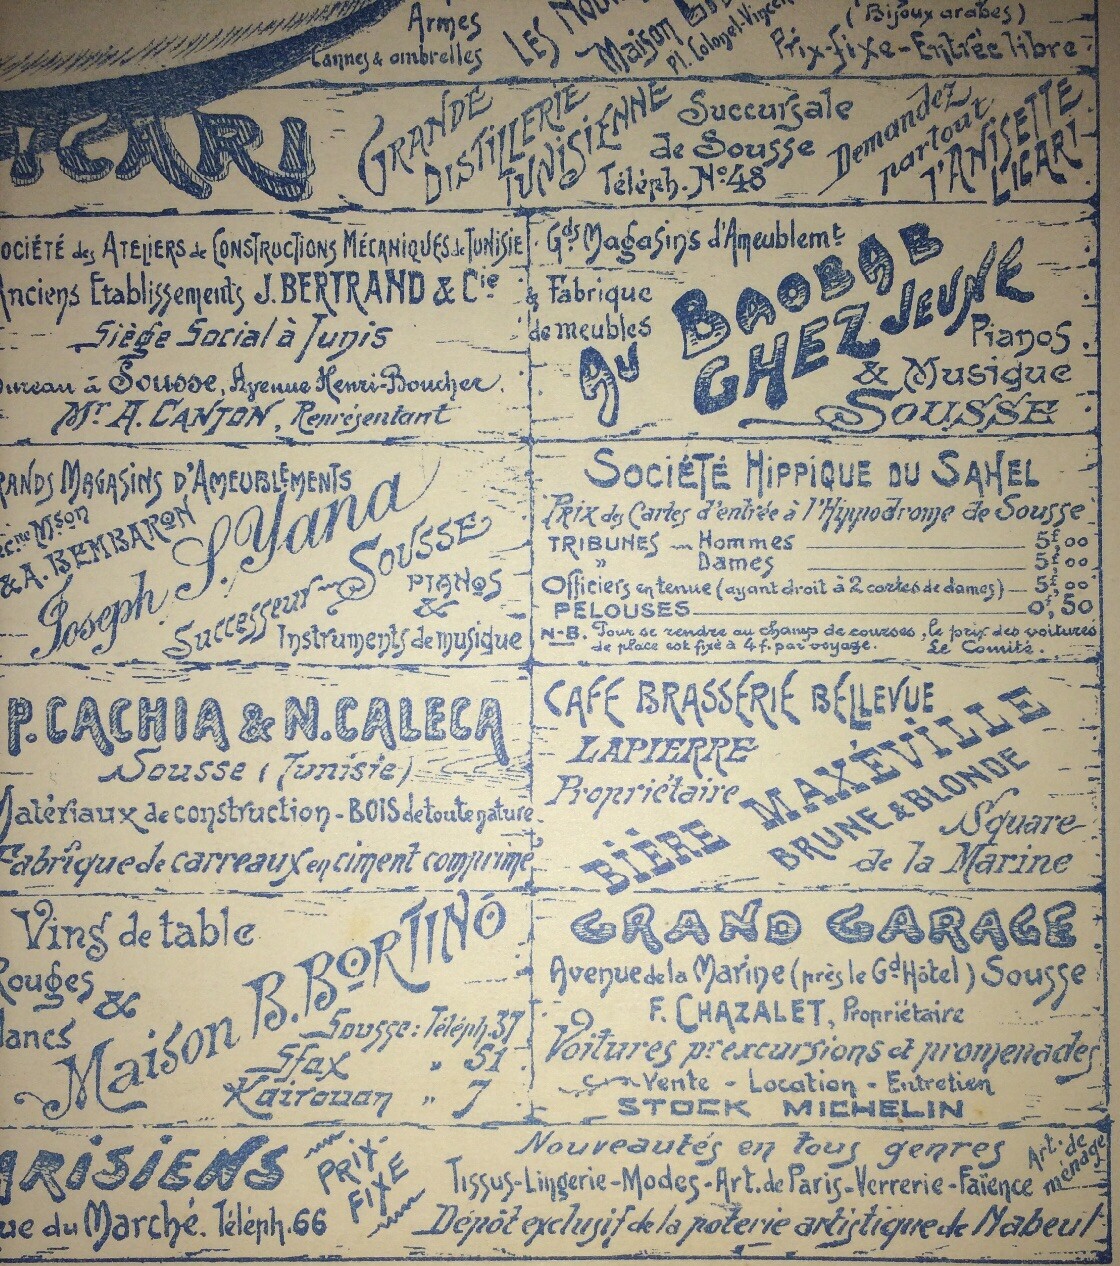 Armes
Cannes & ombrelles
LES
Maison
Pl. Colonel-Vincent
(Bijoux arabes)
Prix-fixe-Entrée libre
ICARI
GRANDE
DISTILLERIE
TUNISIENNE
Succursale
de Sousse
Téléph. No. 48
Demandez
partout
l'ANISETTE
LICARI
OCIÉTÉ des ATELIERS de CONSTRUCTIONS MÉCANIQUES de TUNISIE
Anciens Etablissements J. BERTRAND & Cie
Siège Social à Tunis
ureau à Sousse, Avenue Henri-Boucher.
Mr. A. CANTON, Représentant
Gds Magasins d'Ameublemt
& Fabrique
de meubles
AU BAOBAB
CHEZ JEUNE
Pianos
& Musique
SOUSSE
RANDS MAGASINS D'AMEUBLEMENTS
cne Mson
& A. BEMBARON
Joseph S. Yana
Successeur - SOUSSE
PIANOS
&
Instruments de musique
SOCIÉTÉ HIPPIQUE DU SAHEL
PRIX des Cartes d'entrée à l'Hippodrome de Sousse
TRIBUNES - Hommes 5f,00
" Dames 5f,00
Officiers en tenue (ayant droit à 2 cartes de dames) 5f,00
PELOUSES 0f,50
N-B. Pour se rendre au champ de courses, le prix des voitures
de place est fixé à 4f. par voyage. Le Comité.
P. CACHIA & N. CALECA
Sousse (Tunisie)
Matériaux de construction - BOIS de toute nature.
Fabrique de carreaux en ciment comprimé
CAFÉ BRASSERIE BELLEVUE
LAPIERRE
Propriétaire
BIÈRE MAXÉVILLE
BRUNE & BLONDE
Square
de la Marine
Vins de table
Rouges
&
lancs
Maison B. BORTINO
Sousse: Téléph. 37
Sfax " 51
Kairouan " 7
GRAND GARAGE
Avenue de la Marine (près le Gd Hôtel) Sousse
F. CHAZALET, Propriétaire
Voitures pr excursions et promenades
Vente - Location - Entretien
STOCK MICHELIN
ARISIENS
ue du Marché. Téléph. 66
PRIX-
FIXE
Nouveautés en tous genres
Art. de
ménage
Tissus-Lingerie-Modes-Art. de Paris-Verrerie-Faïence
Dépôt exclusif de la poterie artistique de Nabeul